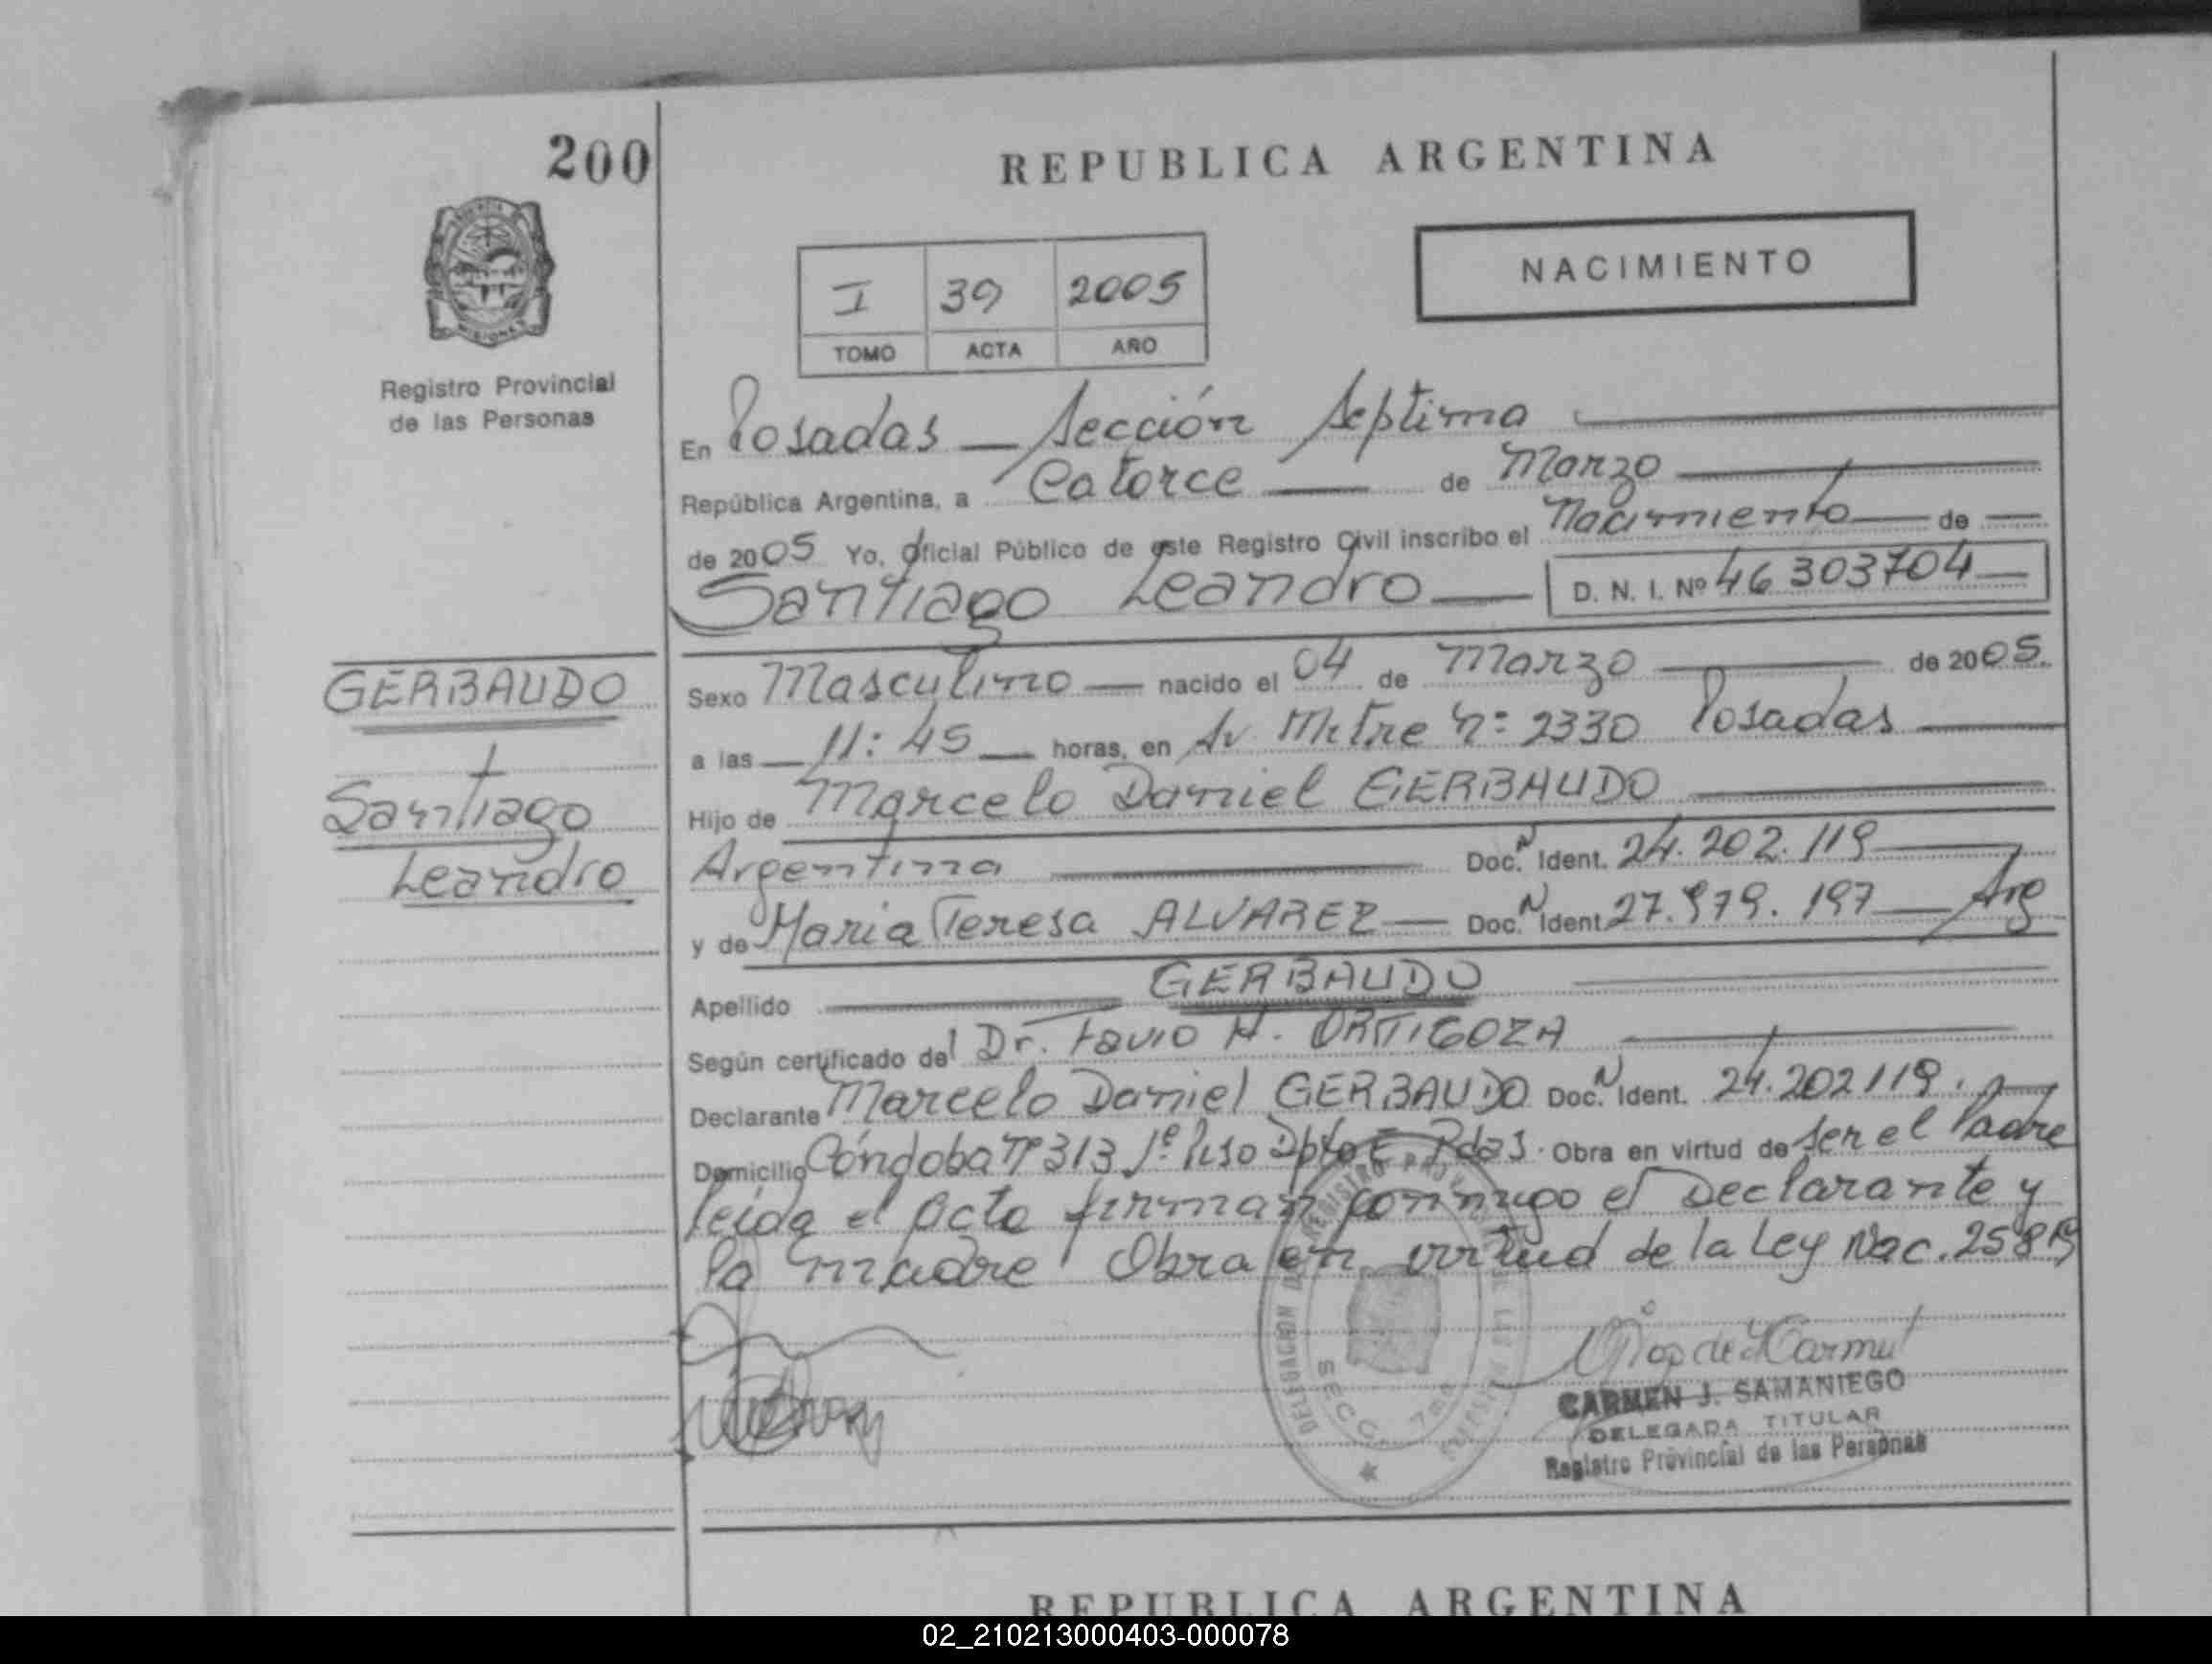 200
REPUBLICA ARGENTINA
MISIONES
Registro Provincial
de las Personas
NACIMIENTO
I 39 2005
TOMO ACTA AÑO
En Posadas — Sección Septima
República Argentina, a Catorce — de Marzo
de 2005 Yo, Oficial Público de este Registro Civil inscribo el Nacimiento — de
Santiago Leandro — D. N. I. Nº 46 303704
GERBAUDO
Santiago
Leandro
Sexo Masculino — nacido el 04 de Marzo — de 2005.
a las — 11:45 — horas, en Av Mitre Nº 2330 Posadas
Hijo de Marcelo Daniel GERBAUDO
Argentina — Doc. N Ident. 24.202.119
y de Maria Teresa ALVAREZ — Doc. N Ident. 27.979.197 — Arg
Apellido — GERBAUDO
Según certificado del Dr. Favio H. ORTIGOZA
Declarante Marcelo Daniel GERBAUDO Doc. N Ident. 24.202119.
Domicilio Córdoba Nº 313 1º Piso Dpto E Pdas. Obra en virtud de ser el Padre
leida el acta firman conmigo el Declarante y
la madre Obra en virtud de la Ley Nac. 25819
DELEGACION REGISTRO PROVINCIAL DE LAS PERSONAS
SECC. 7ma
CARMEN J. SAMANIEGO
DELEGADA TITULAR
Registro Provincial de las Personas
REPUBLICA ARGENTINA
02_210213000403-000078